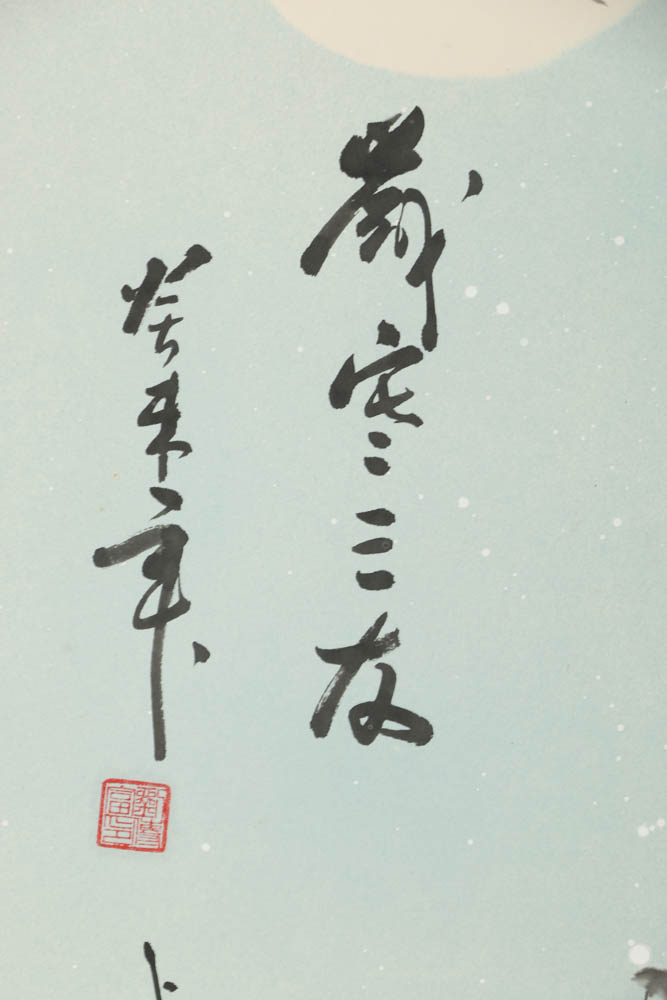 歲寒三友
癸未年